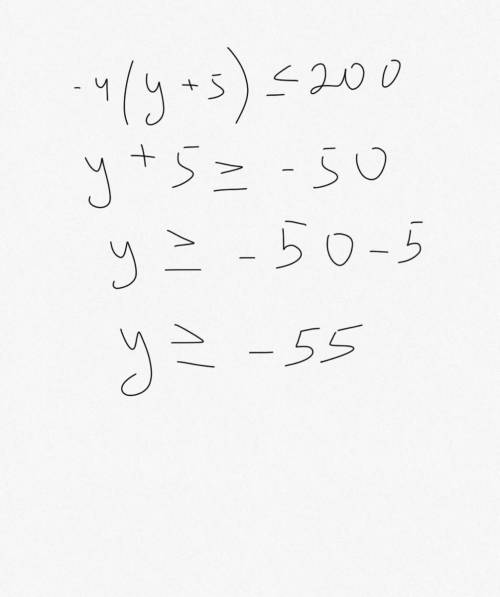 -4(y+5) ≤ 200
y + 5 ≥ - 50
y ≥ - 50 - 5
y ≥ - 55